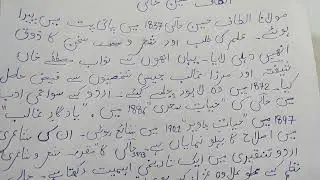 الطاف حسین حالی
مولانا الطاف حسین حالی 1837 میں پانی پت میں پیدا
ہوئے۔ علم کی طلب اور شعر و سخن کا ذوق
انھیں دہلی لایا۔ یہاں انھوں نے نواب مصطفٰے خاں
شیفتہ اور مرزا غالب جیسی شخصیتوں سے فیض حاصل
کیا۔ 1872 میں وہ لاہور پہنچے۔ اردو کے سوانحی ادب
میں حالی کی "حیات سعدی" 1886 میں، "یادگار غالب"
1897 میں "حیات جاوید" 1901 میں شائع ہوئی۔ ان کی شاعری
میں اصلاح کا پہلو نمایاں ہے۔ حالی کا "مقدمہ شعر و شاعری"
اردو تنقید میں ایک تاریخی اہمیت رکھتا ہے۔ حالی
نظم کے علاوہ غزل